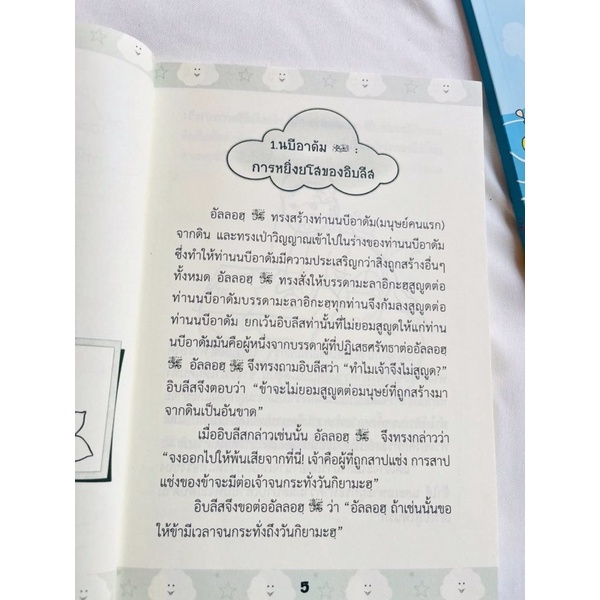 1.นบีอาดัม :
การหยิ่งยโสของอิบลีส
อัลลอฮฺ ﷻ ทรงสร้างท่านนบีอาดัม(มนุษย์คนแรก)
จากดิน และทรงเป่าวิญญาณเข้าไปในร่างของท่านนบีอาดัม
ซึ่งทำให้ท่านนบีอาดัมมีความประเสริฐกว่าสิ่งถูกสร้างอื่นๆ
ทั้งหมด อัลลอฮฺ ﷻ ทรงสั่งให้บรรดามะลาอิกะฮฺสูญูดต่อ
ท่านนบีอาดัมบรรดามะลาอิกะฮฺทุกท่านจึงก้มลงสูญูดต่อ
ท่านนบีอาดัม ยกเว้นอิบลีสเท่านั้นที่ไม่ยอมสูญูดให้แก่ท่าน
นบีอาดัมมันคือผู้หนึ่งจากบรรดาผู้ที่ปฏิเสธศรัทธาต่ออัลลอฮฺ
ﷻ อัลลอฮฺ ﷻ จึงทรงถามอิบลีสว่า “ทำไมเจ้าจึงไม่สูญูด?”
อิบลีสจึงตอบว่า “ข้าจะไม่ยอมสูญูดต่อมนุษย์ที่ถูกสร้างมา
จากดินเป็นอันขาด”
เมื่ออิบลีสกล่าวเช่นนั้น อัลลอฮฺ ﷻ จึงทรงกล่าวว่า
“จงออกไปให้พ้นเสียจากที่นี่! เจ้าคือผู้ที่ถูกสาปแช่ง การสาป
แช่งของข้าจะมีต่อเจ้าจนกระทั่งวันกิยามะฮฺ”
อิบลีสจึงขอต่ออัลลอฮฺ ﷻ ว่า “อัลลอฮฺ ถ้าเช่นนั้นขอ
ให้ข้ามีเวลาจนกระทั่งถึงวันกิยามะฮฺ”
5